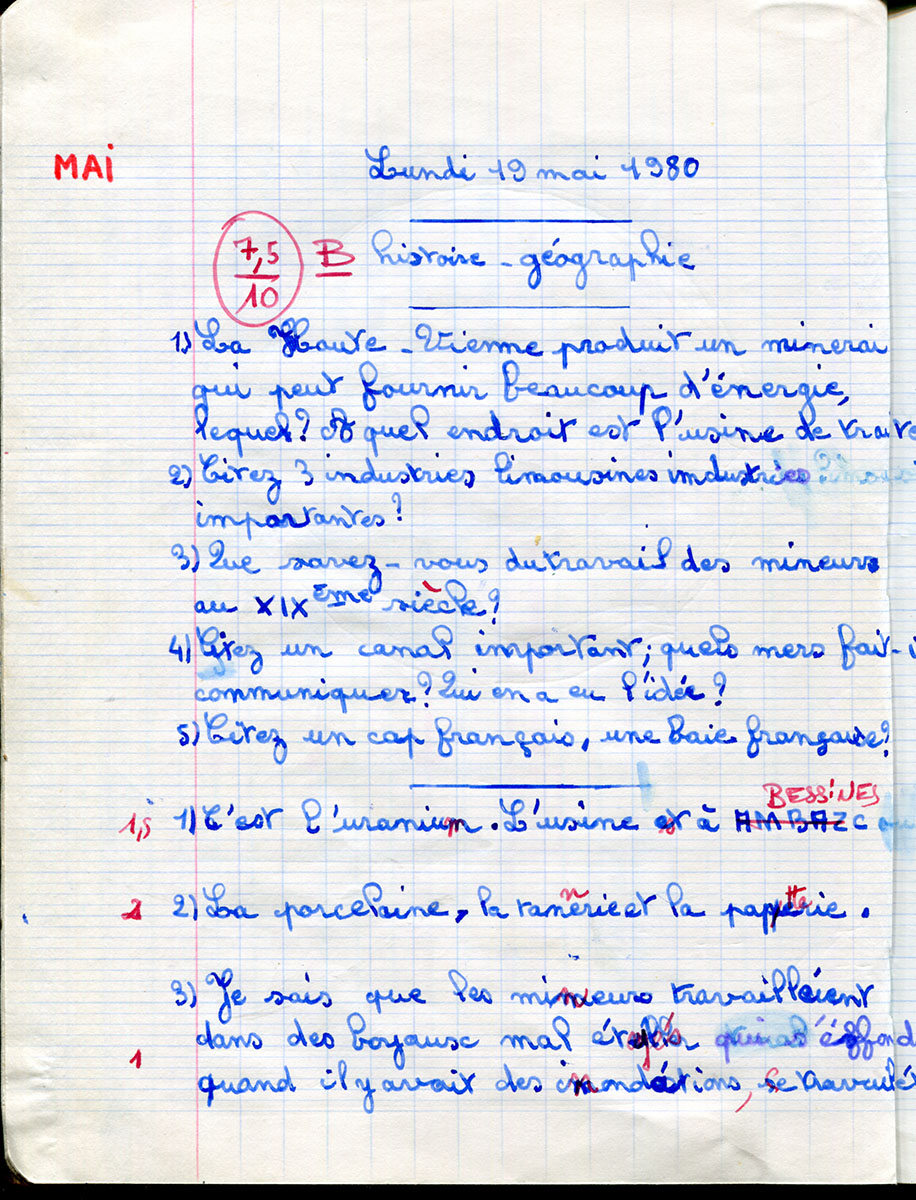 MAi
Lundi 19 mai 1980
7,5
10
B histoire - géographie
1) La Haute - Vienne produit un minerai
qui peut fournir beaucoup d'énergie,
lequel? A quel endroit est l'usine de traite
2) Citez 3 industries limousines industries?
importantes?
3) Que savez - vous du travail des mineurs
au XIX ème siècle?
4) Citez un canal important; quels mers fait-i
communiquer? Qui en a eu l'idée?
5) Citez un cap français, une baie française?
BESSiNES
1,5 1) C'est l'uranium. L'usine est à AMBAZC
2 2) La porcelaine, la tannerie et la papetterie.
3) Je sais que les mineurs travailléient
dans des boyaux mal qui s'éffond
1 quand il y avait des inondations, se travaillé